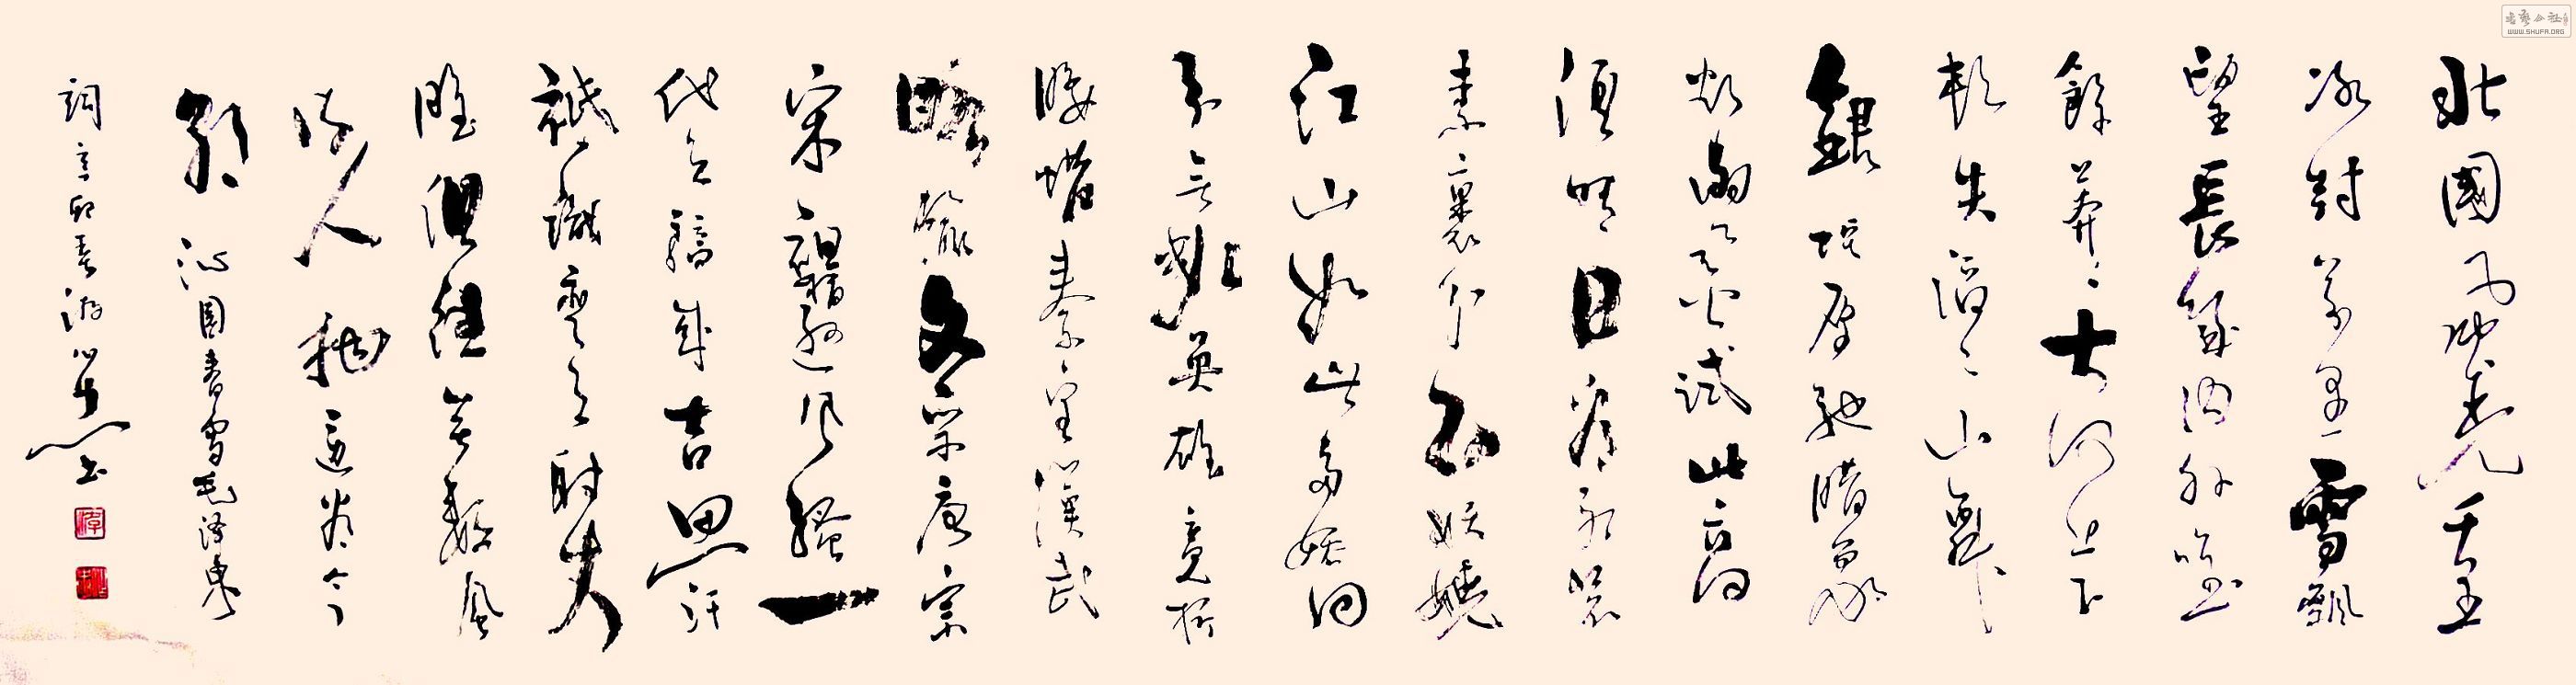 北國風光千里
冰封萬里雪飄
望長城內外唯
餘莽〻大河上下
頓失滔〻山舞
銀蛇原馳蠟象
欲與天公試比高
須晴日看紅裝
素裹分外妖嬈
江山如此多嬌
引無數英雄競折
腰惜秦皇漢武
略輸文采唐宗
宋祖稍遜風騷一
代天驕成吉思汗
祇識彎弓射大
雕俱往矣數風
流人物還看今
朝 沁園春雪毛澤東
詞辛卯春 書
WWW.SHUFA.ORG